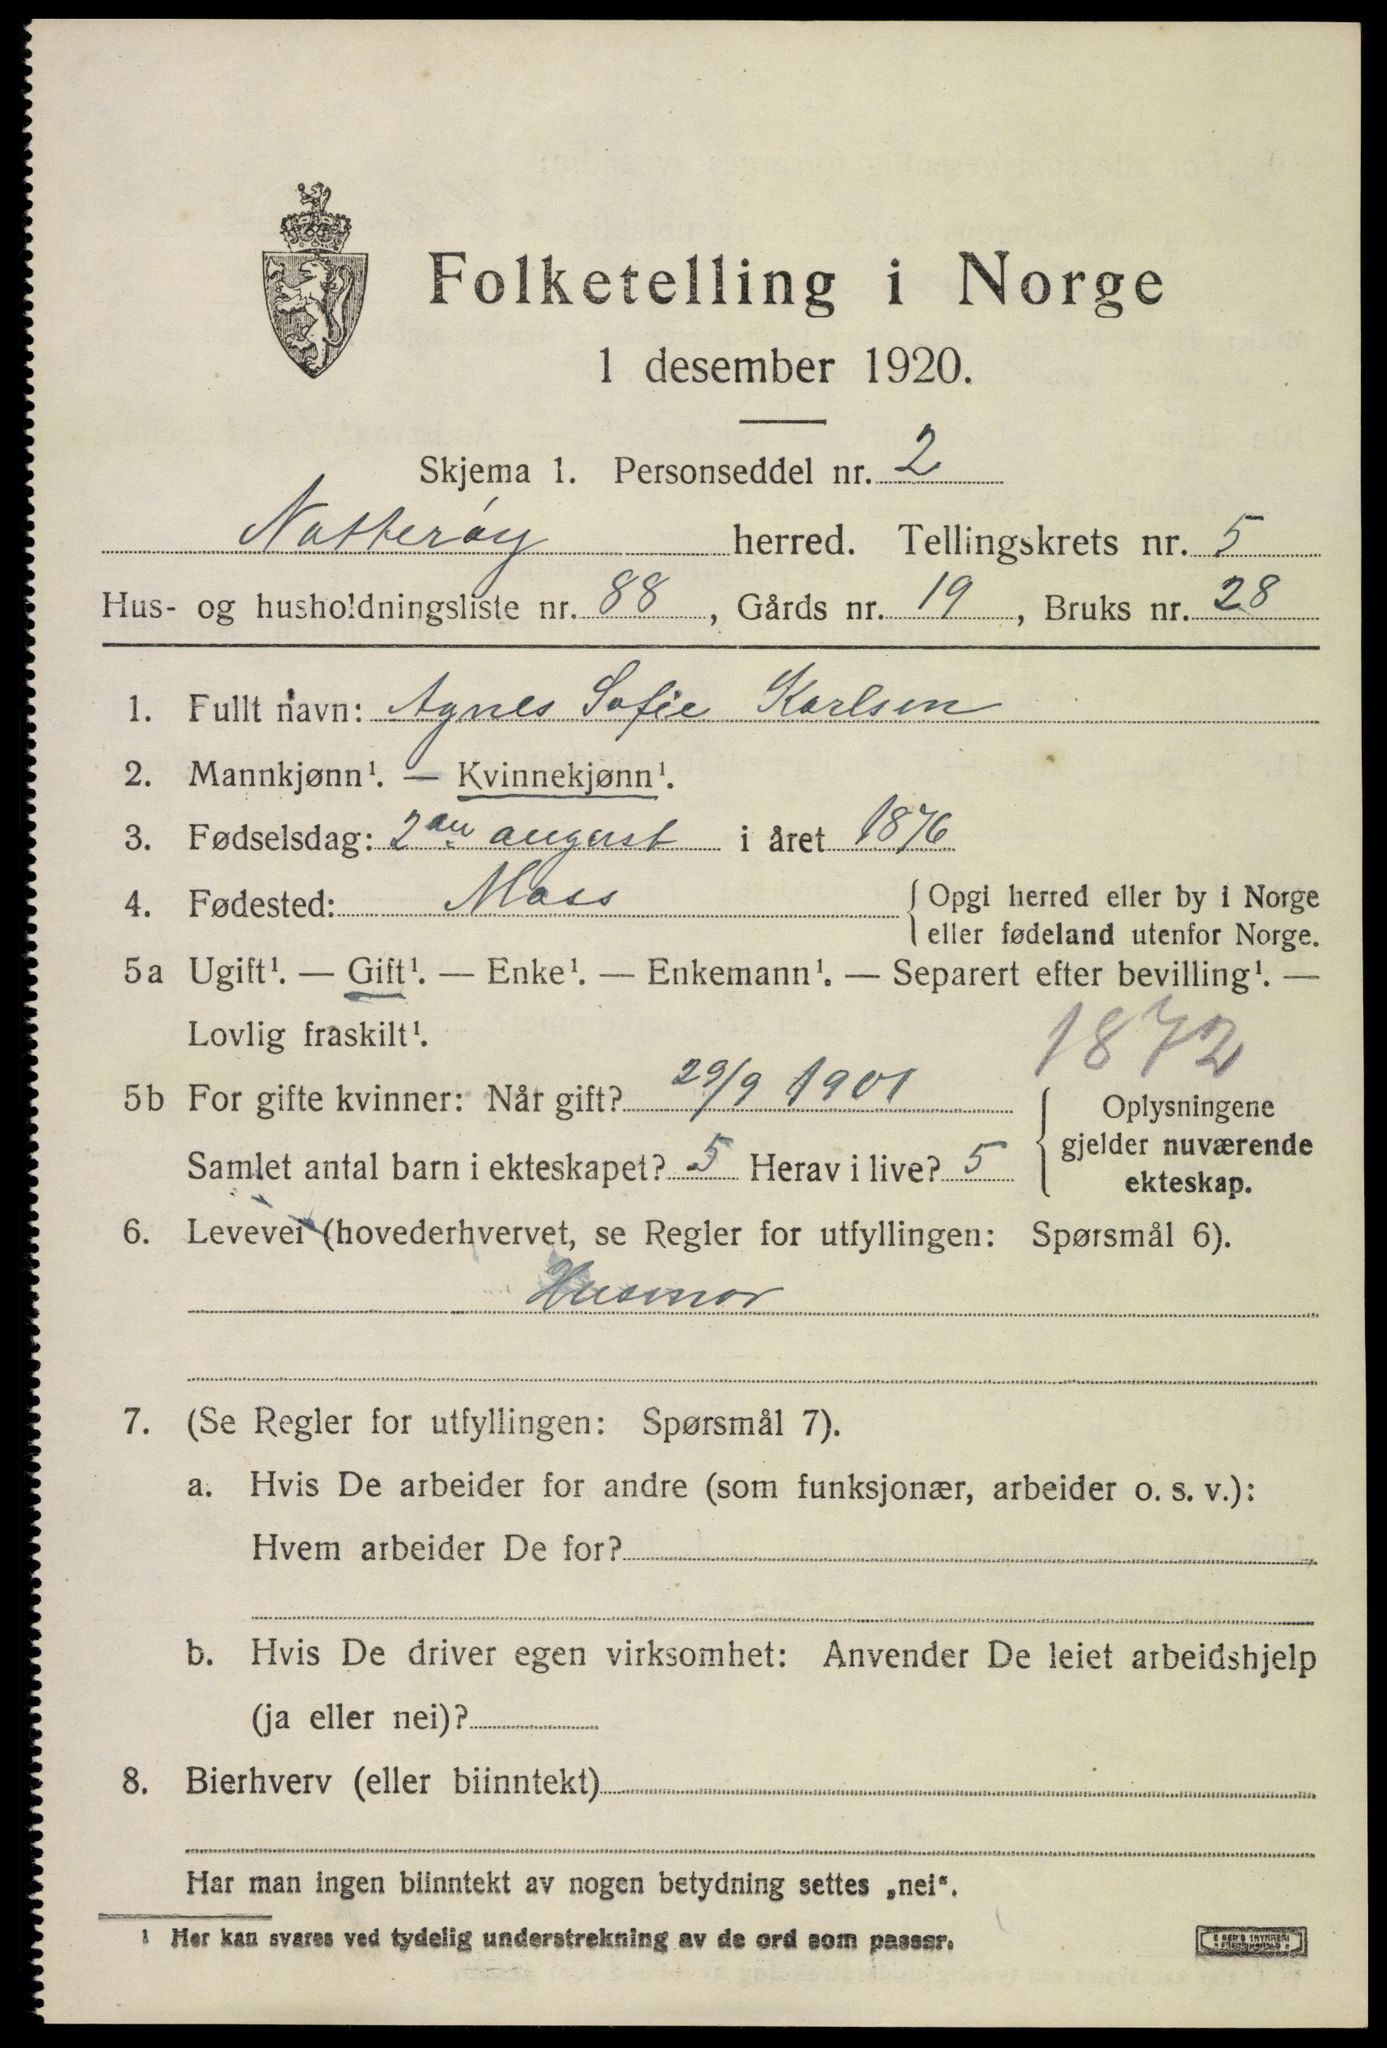 Folketelling i Norge
1 desember 1920.
Skjema 1. Personseddel nr. 2
Nøtterøy herred. Tellingskrets nr. 5
Hus- og husholdningsliste nr. 88, Gårds nr. 19, Bruks nr. 28
1. Fullt navn: Agnes Sofie Karlsen
2. Mannkjønn¹. — Kvinnekjønn¹.
3. Fødselsdag: 2 august i året 1876
4. Fødested: Moss { Opgi herred eller by i Norge
eller fødeland utenfor Norge.
5a Ugift¹. — Gift¹. — Enke¹. — Enkemann¹. — Separert efter bevilling¹. —
Lovlig fraskilt¹.
1872
5b For gifte kvinner: Når gift? 29/9 1901
Samlet antal barn i ekteskapet? 5 Herav i live? 5
Oplysningene
gjelder nuværende
ekteskap.
6. Levevei (hovederhvervet, se Regler for utfyllingen: Spørsmål 6).
Husmor
7. (Se Regler for utfyllingen: Spørsmål 7).
a. Hvis De arbeider for andre (som funksjonær, arbeider o. s. v.):
Hvem arbeider De for?
b. Hvis De driver egen virksomhet: Anvender De leiet arbeidshjelp
(ja eller nei)?
8. Bierhverv (eller biinntekt)
Har man ingen biinntekt av nogen betydning settes „nei".
¹ Her kan svares ved tydelig understrekning av de ord som passer.